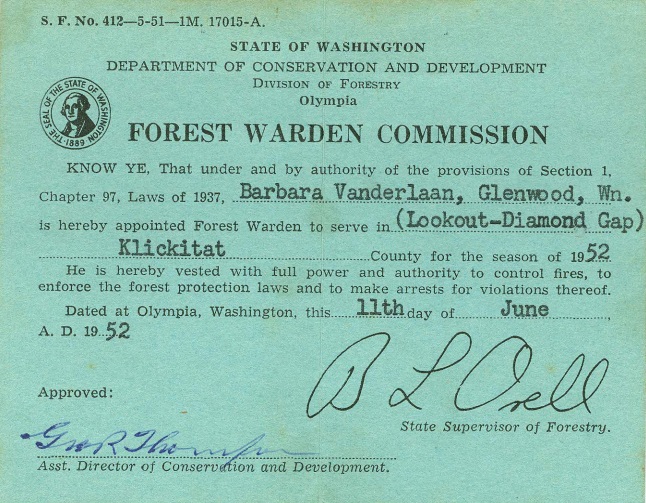 S. F. No. 412—5-51—1M. 17015-A.
STATE OF WASHINGTON
DEPARTMENT OF CONSERVATION AND DEVELOPMENT
DIVISION OF FORESTRY
Olympia
THE SEAL OF THE STATE OF WASHINGTON
1889
FOREST WARDEN COMMISSION
KNOW YE, That under and by authority of the provisions of Section 1,
Chapter 97, Laws of 1937, Barbara Vanderlaan, Glenwood, Wn.
is hereby appointed Forest Warden to serve in (Lookout-Diamond Gap)
Klickitat County for the season of 1952
He is hereby vested with full power and authority to control fires, to
enforce the forest protection laws and to make arrests for violations thereof.
Dated at Olympia, Washington, this 11th day of June,
A. D. 1952
B L Orell
Approved:
State Supervisor of Forestry.
Geo R Thompson
Asst. Director of Conservation and Development.